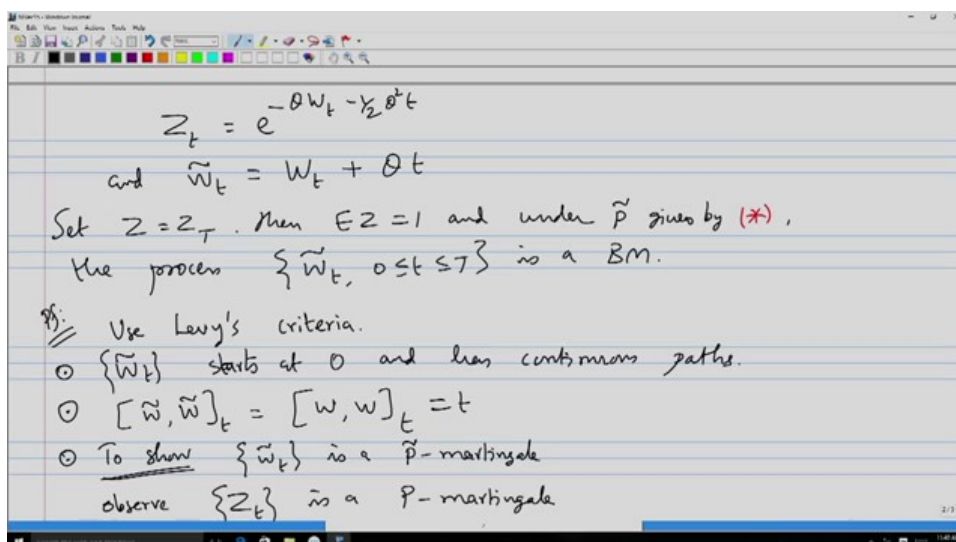 File Edit View Insert Actions Tools Help
B I
Z_t = e^{-θW_t - ½θ²t}
and W̃_t = W_t + θt
Set Z = Z_T. Then EZ = 1 and under P̃ given by (*),
the process {W̃_t, 0 ≤ t ≤ T} is a BM.
Pf: Use Levy's criteria.
⊙ {W̃_t} starts at 0 and has continuous paths.
⊙ [W̃, W̃]_t = [W, W]_t = t
⊙ To show {W̃_t} is a P̃-martingale
observe {Z_t} is a P-martingale
2/3